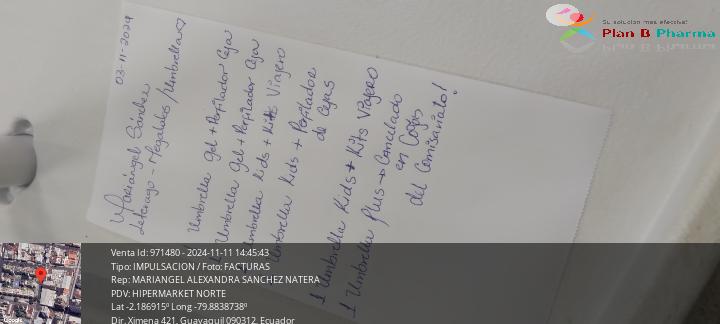 03-11-2024
Mariángel Sánchez
Leterago - Megalabs / Umbrella
Umbrella Gel + Perfilador Ceja
Umbrella Gel + Perfilador Ceja
Umbrella Kids + Kits Viajero
Umbrella Kids + Perfilador
de Cejas
1 Umbrella Kids + Kits Viajero
1 Umbrella Plus → Cancelado
en Cajas
del Comisariato!
Su solución más efectiva!
Plan B Pharma
Venta Id: 971480 - 2024-11-11 14:45:43
Tipo: IMPULSACION / Foto: FACTURAS
Rep: MARIANGEL ALEXANDRA SANCHEZ NATERA
PDV: HIPERMARKET NORTE
Lat -2.186915º Long -79.8838738º
Dir. Ximena 421, Guayaquil 090312, Ecuador
Google